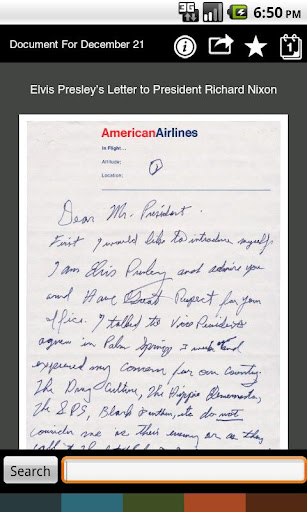 3G 6:50 PM
Document For December 21
1
Elvis Presley's Letter to President Richard Nixon
AmericanAirlines
In Flight...
Altitude;
Location;
Dear Mr. President.
First I would like to introduce myself.
I am Elvis Presley and admire you
and Have Great Respect for your
office. I talked to Vice President
agnew in Palm Springs I week and
expressed my concern for our country.
The Drug Culture, The Hippie Elements,
The SDS, Black Panthers, etc do not
consider me as their enemy or as they
call it The
Search